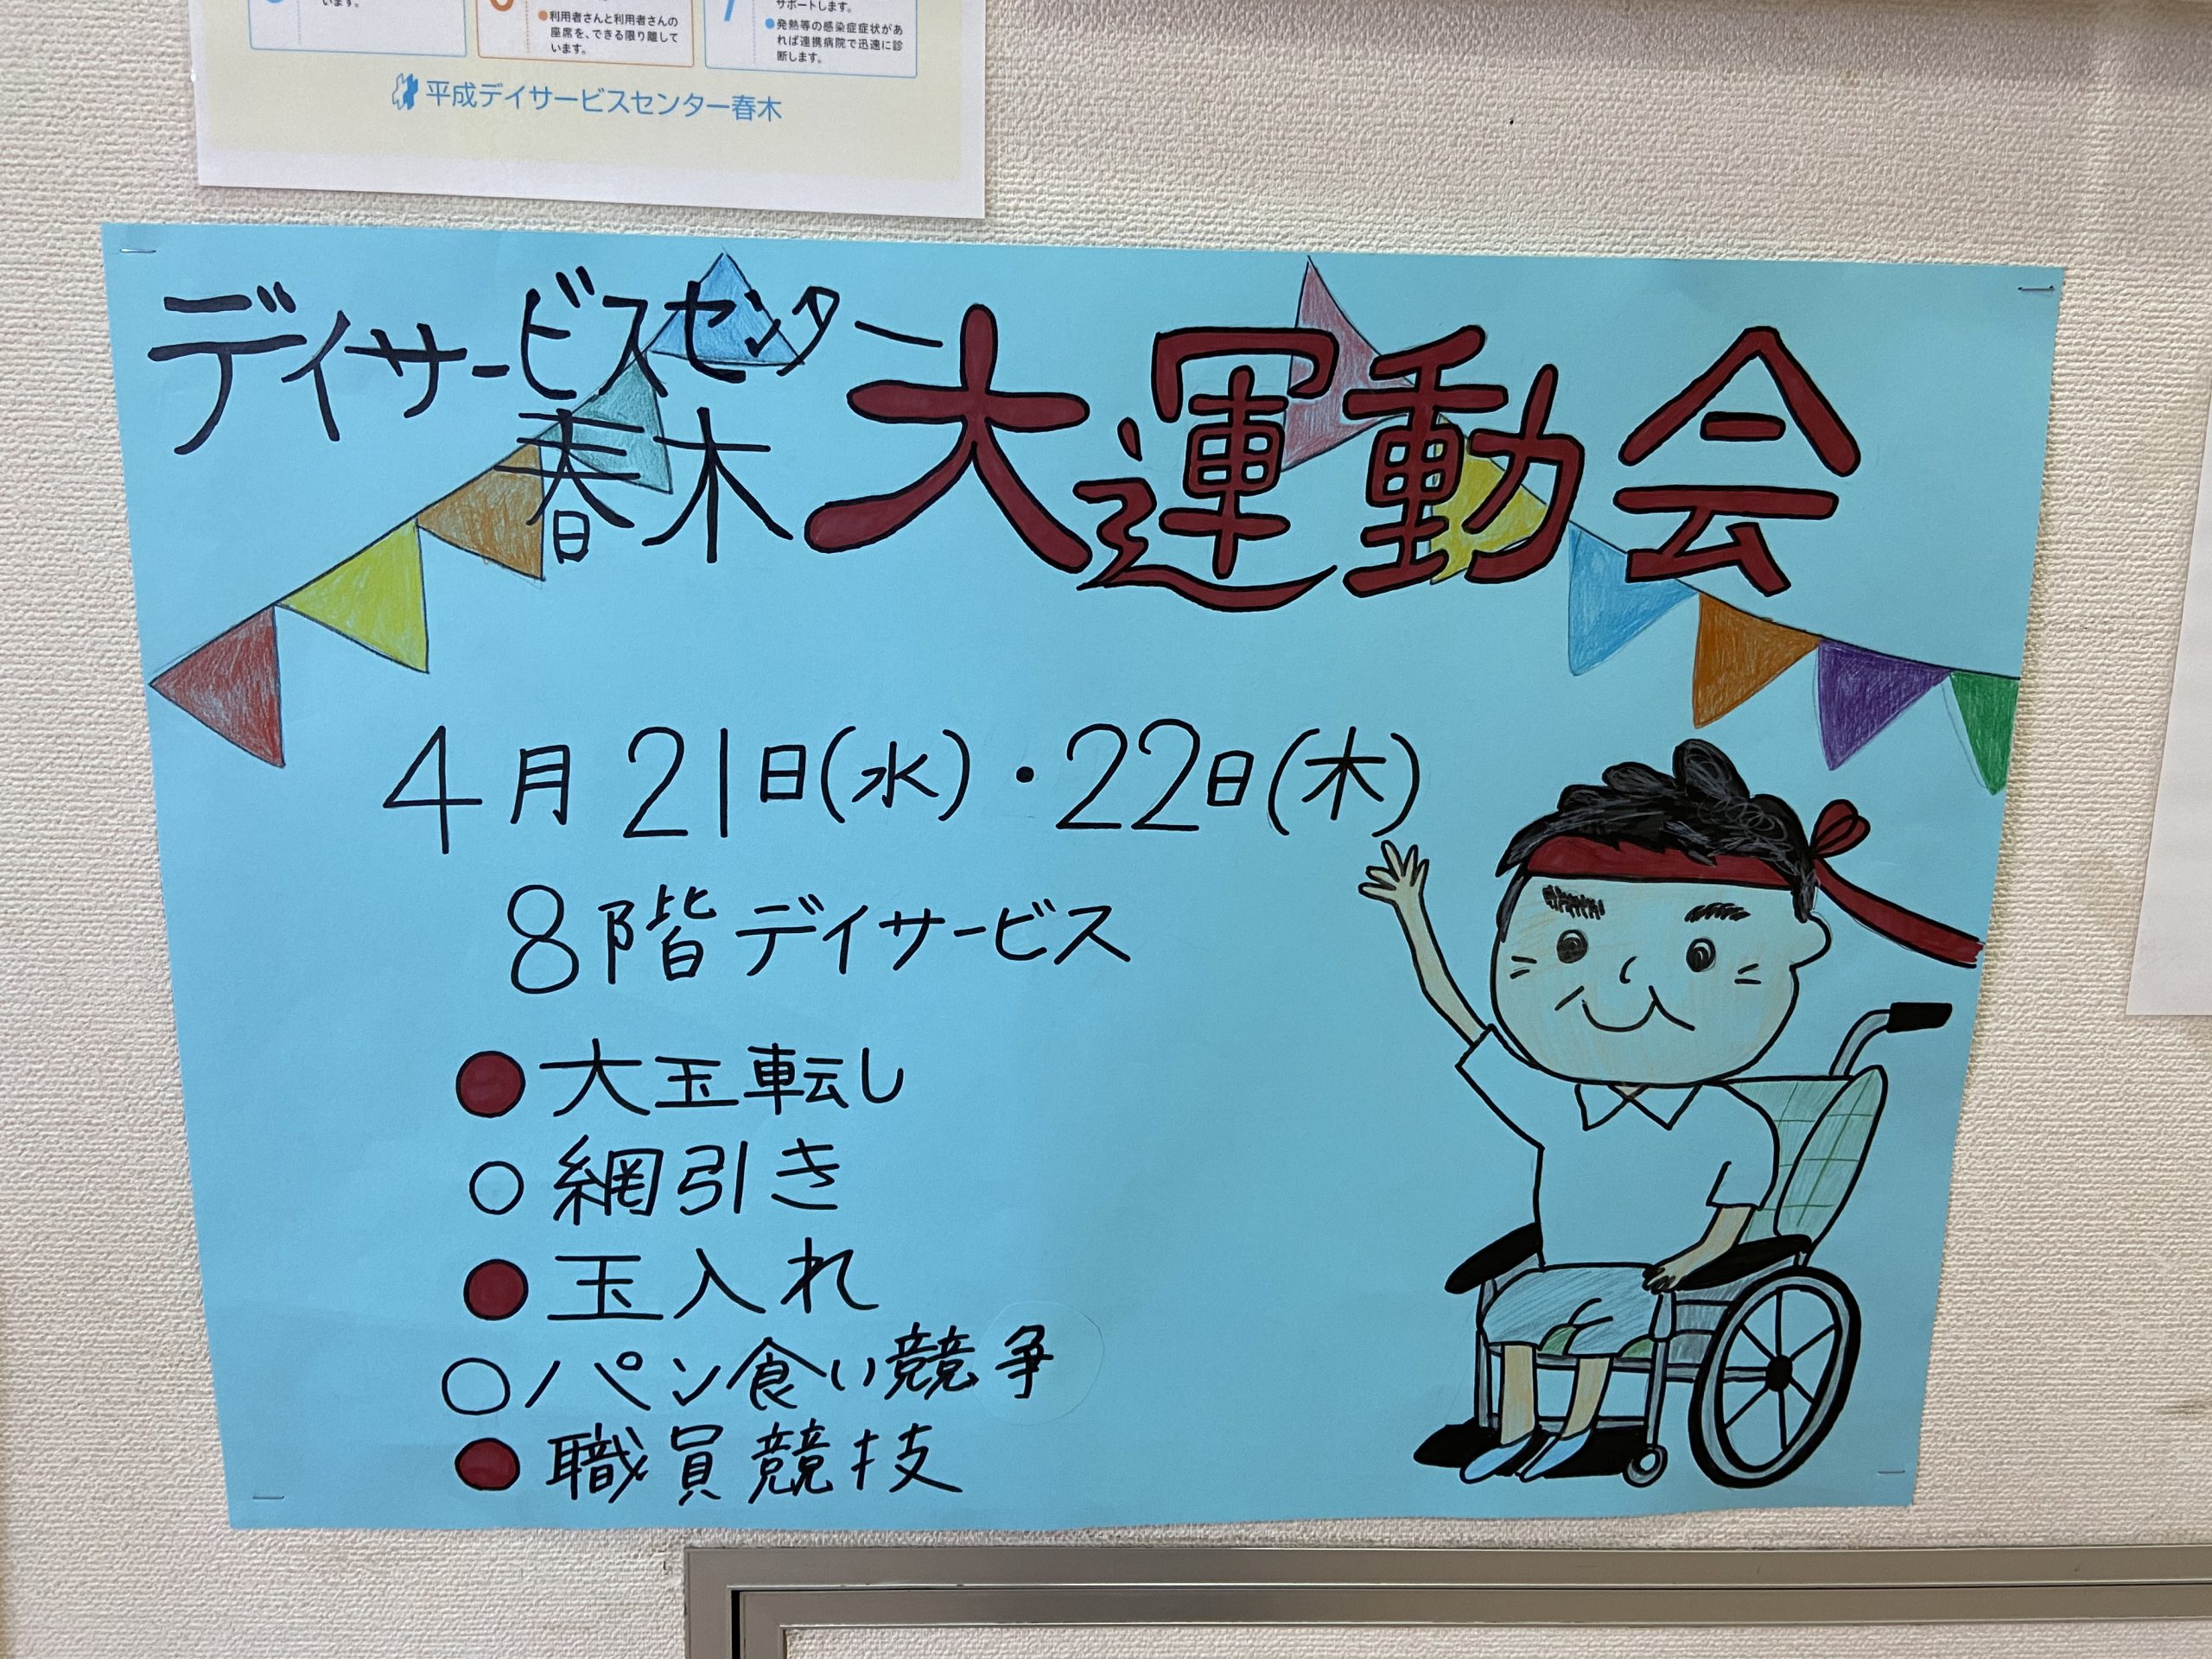 います。
●利用者さんと利用者さんの
座席を、できる限り離して
います。
サポートします。
●発熱等の感染症症状があ
れば連携病院で迅速に診
断します。
平成デイサービスセンター春木
デイサービスセンター
春木 大運動会
4月21日(水)・22日(木)
8階デイサービス
●大玉転し
○網引き
●玉入れ
○パン食い競争
●職員競技